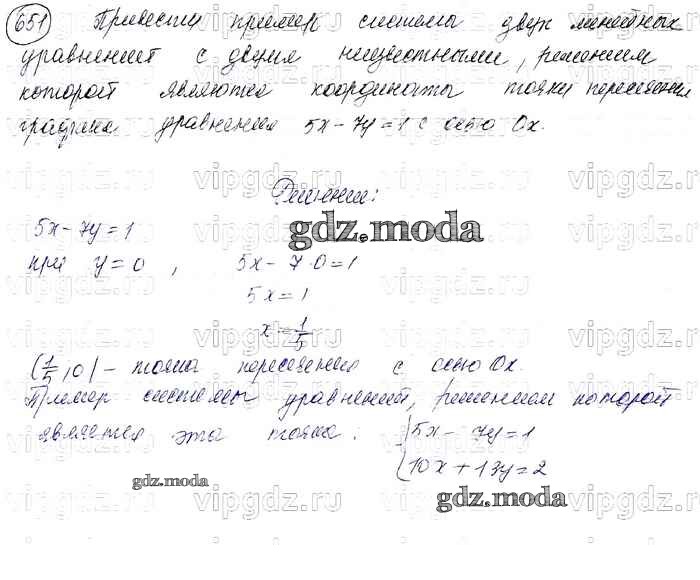 651 Привести пример системы двух линейных
уравнений с двумя неизвестными, решением
которой являются координаты точки пересечения
графика уравнения 5x-7y=1 с осью Ox.
Решение:
gdz.moda
5x-7y=1
при y=0, 5x-7·0=1
5x=1
x=1/5
(1/5,0)- точка пересечения с осью Ox.
Пример системы уравнений, решением которой
является эта точка: {5x-7y=1
10x+13y=2
gdz.moda
gdz.moda
vipgdz.ru